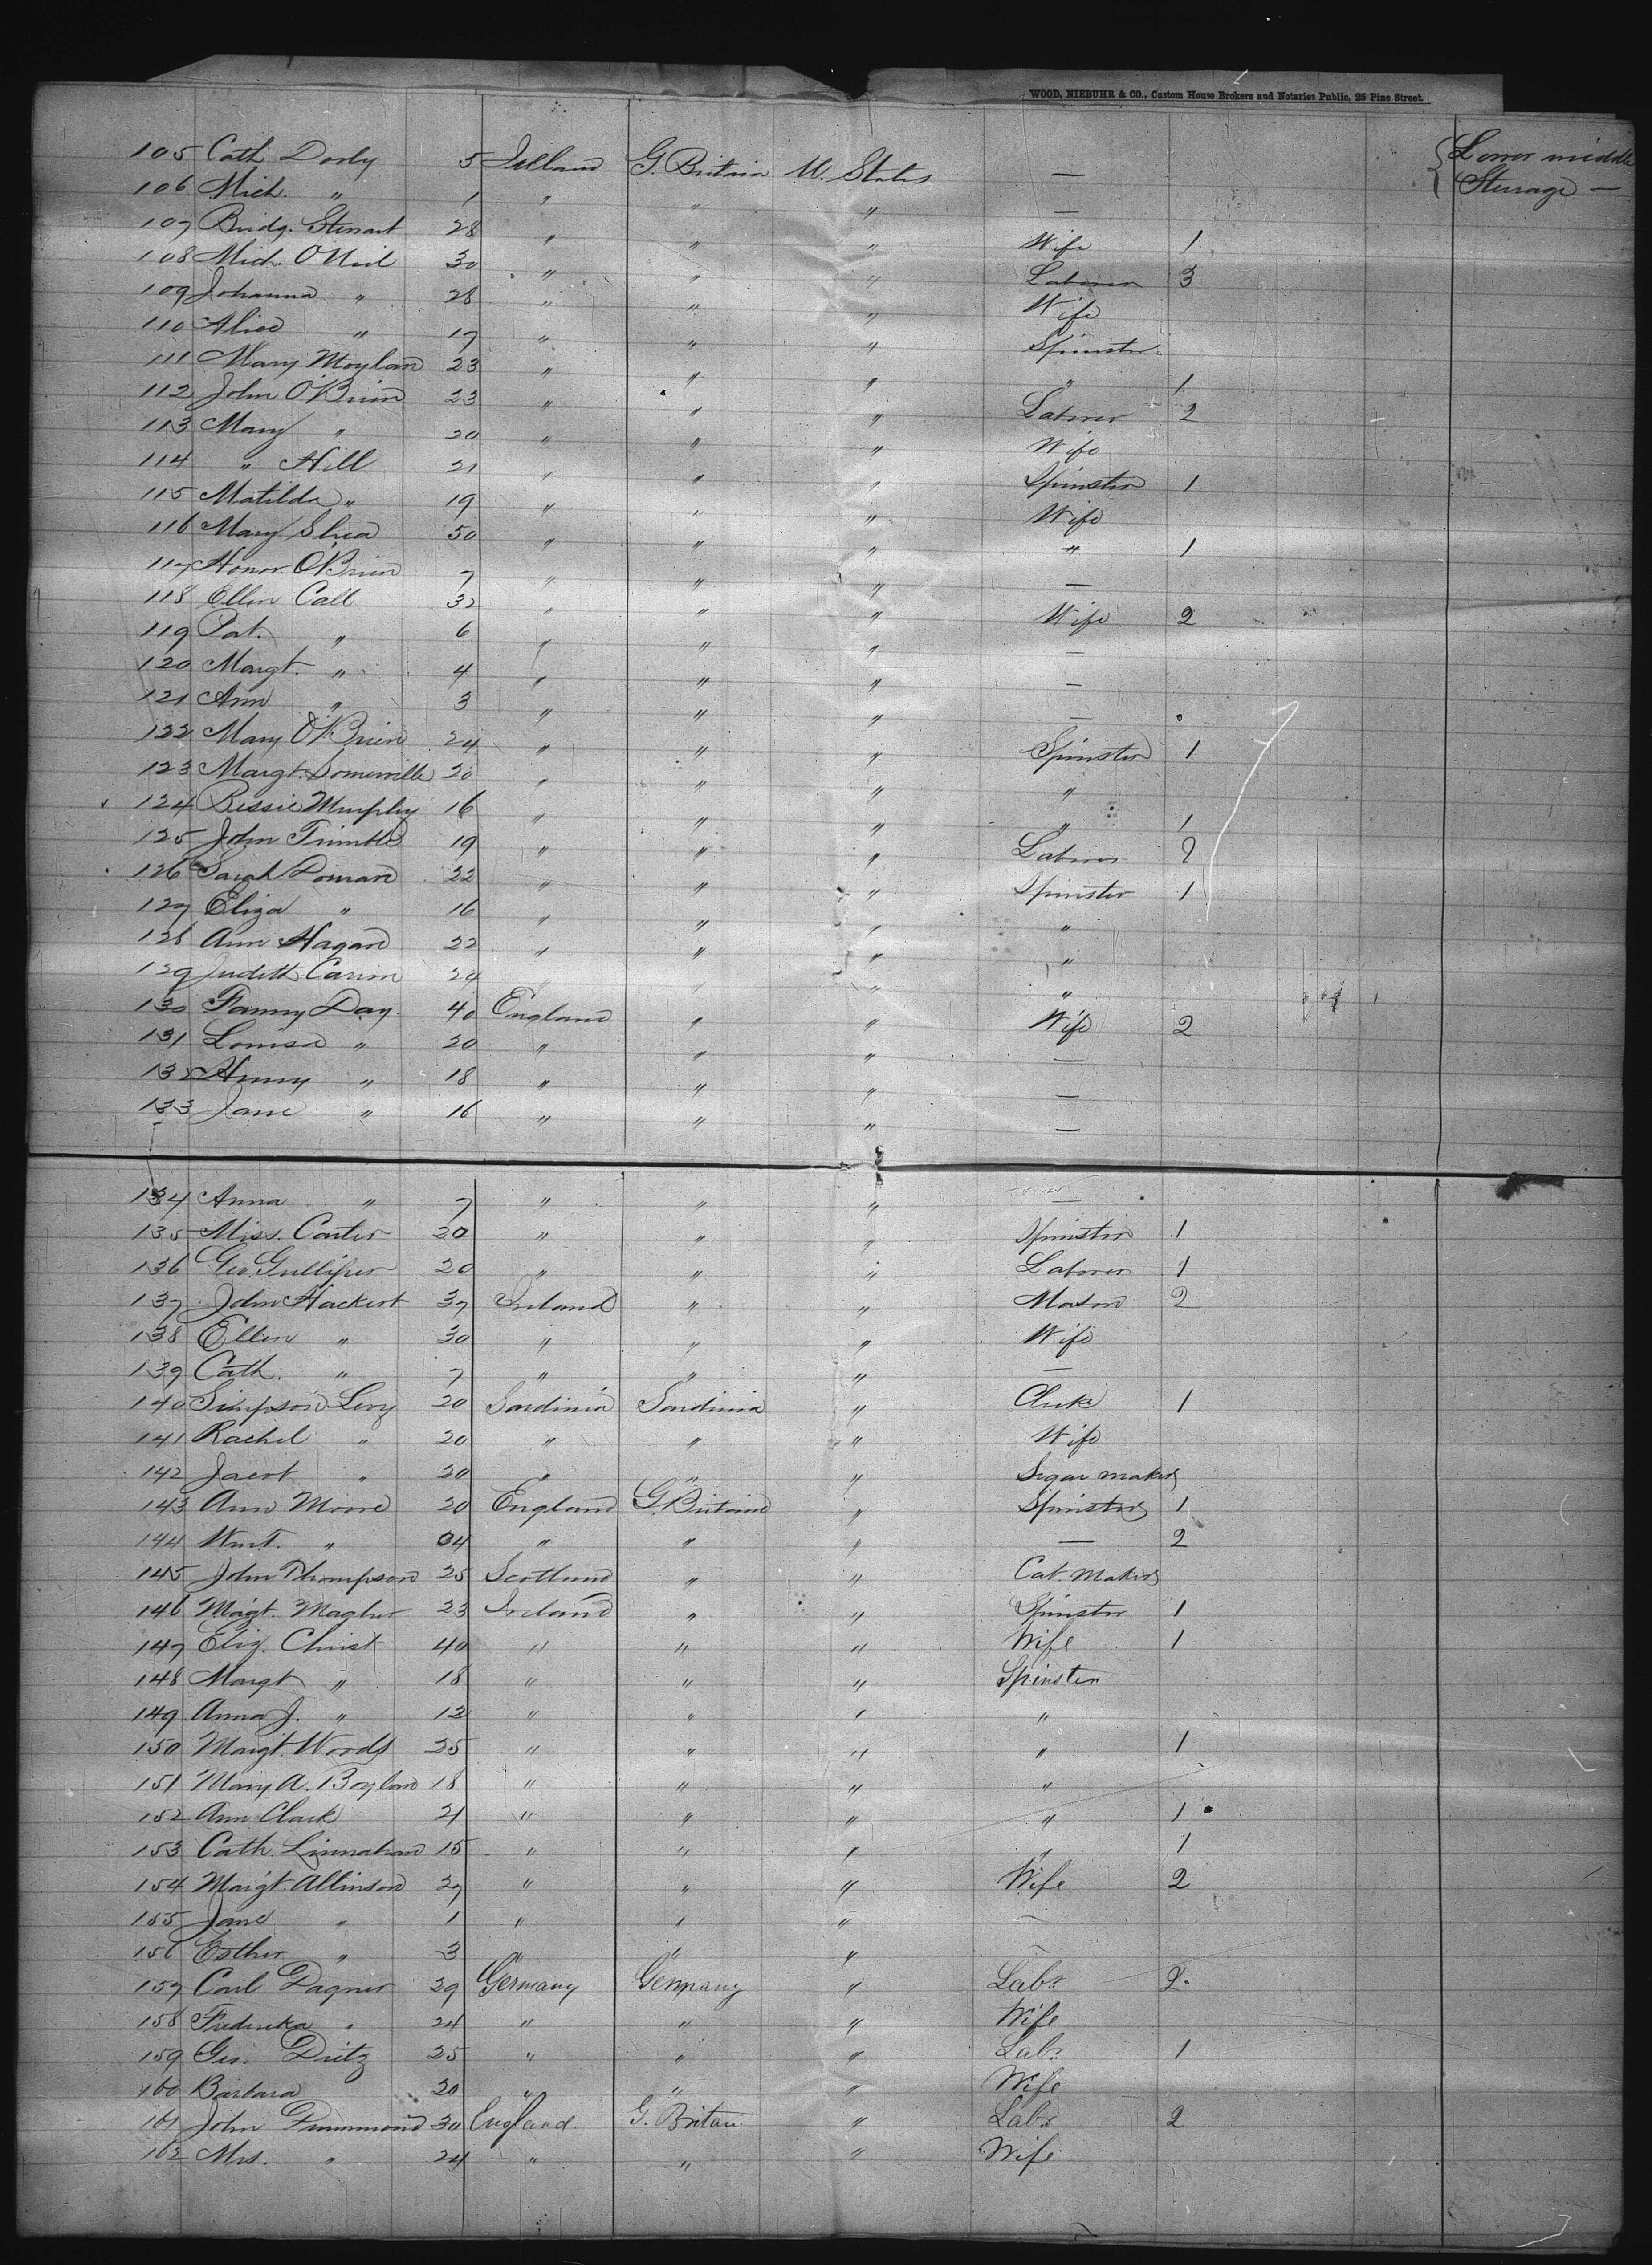 WOOD, NIEBUHR & CO., Custom House Brokers and Notaries Public, 25 Pine Street.
105 Cath Dooly 5 Ireland G. Britain U. States — Lower middle
106 Mich. " 1 " " " — Sterage —
107 Bridg. Stewart 28 " " " Wife 1
108 Mich. O'Neil 30 " " " Laborer 3
109 Johanna " 28 " " " Wife
110 Alice " 17 " " " Spinster
111 Mary Moylan 23 " " " " 1
112 John O'Brien 23 " " " Laborer 2
113 Mary " 20 " " " Wife
114 " Hill 21 " " " Spinster 1
115 Matilda " 19 " " " Wife
116 Mary Shea 50 " " " " 1
117 Honor. O'Brien 7 " " " —
118 Ellen Call 32 " " " Wife 2
119 Pat. " 6 " " " —
120 Margt. " 4 " " " —
121 Ann " 3 " " " —
122 Mary O'Brien 24 " " " Spinster 1
123 Margt. Somerville 20 " " " "
124 Bessie Murphy 16 " " " " 1
125 John Trimble 19 " " " Laborer 2
126 Sarah Doman 22 " " " Spinster 1
127 Eliza " 16 " " " "
128 Ann Hagan 22 " " " "
129 Judith 24 " " " "
130 Fanny Day 40 England " " Wife 2
131 Louisa " 20 " " " —
132 " 18 " " " —
133 Jane " 16 " " " —
134 Anna " 7 " " " —
135 Miss. Carter 20 " " " Spinster 1
136 Geo. Gullifer 20 " " " Laborer 1
137 John Hackert 37 Ireland " " Mason 2
138 Ellen " 30 " " " Wife
139 Cath. " 7 " " " —
140 Simpson Levy 20 Sardinia Sardinia " Clerk 1
141 Rachel " 20 " " " Wife
142 Jacob " 20 " " " Segar maker
143 Ann Moore 20 England G. Britain " Spinster 1
144 Wmt. " 04 " " " — 2
145 John Thompson 25 Scotland " " Cab. Maker
146 Margt. Magher 23 Ireland " " Spinster 1
147 Eliz. Christ 40 " " " Wife 1
148 Margt " 18 " " " Spinster
149 Anna J. " 12 " " " "
150 Margt. Woods 25 " " " " 1
151 Mary A. Boylan 18 " " " "
152 Ann Clark 21 " " " " 1
153 Cath. Linnahan 15 " " " " 1
154 Margt. Allinson 27 " " " Wife 2
155 Jane " 1 " " " —
156 Esther " 3 " " " —
157 Carl Dagner 29 Germany Germany " Labr 2
158 Frederika " 24 " " " Wife
159 Geo. Dietz 25 " " " Labr 1
160 Barbara 20 " " " Wife
161 John Drummond 30 England G. Britain " Labr 2
162 Mrs. " 24 " " " Wife